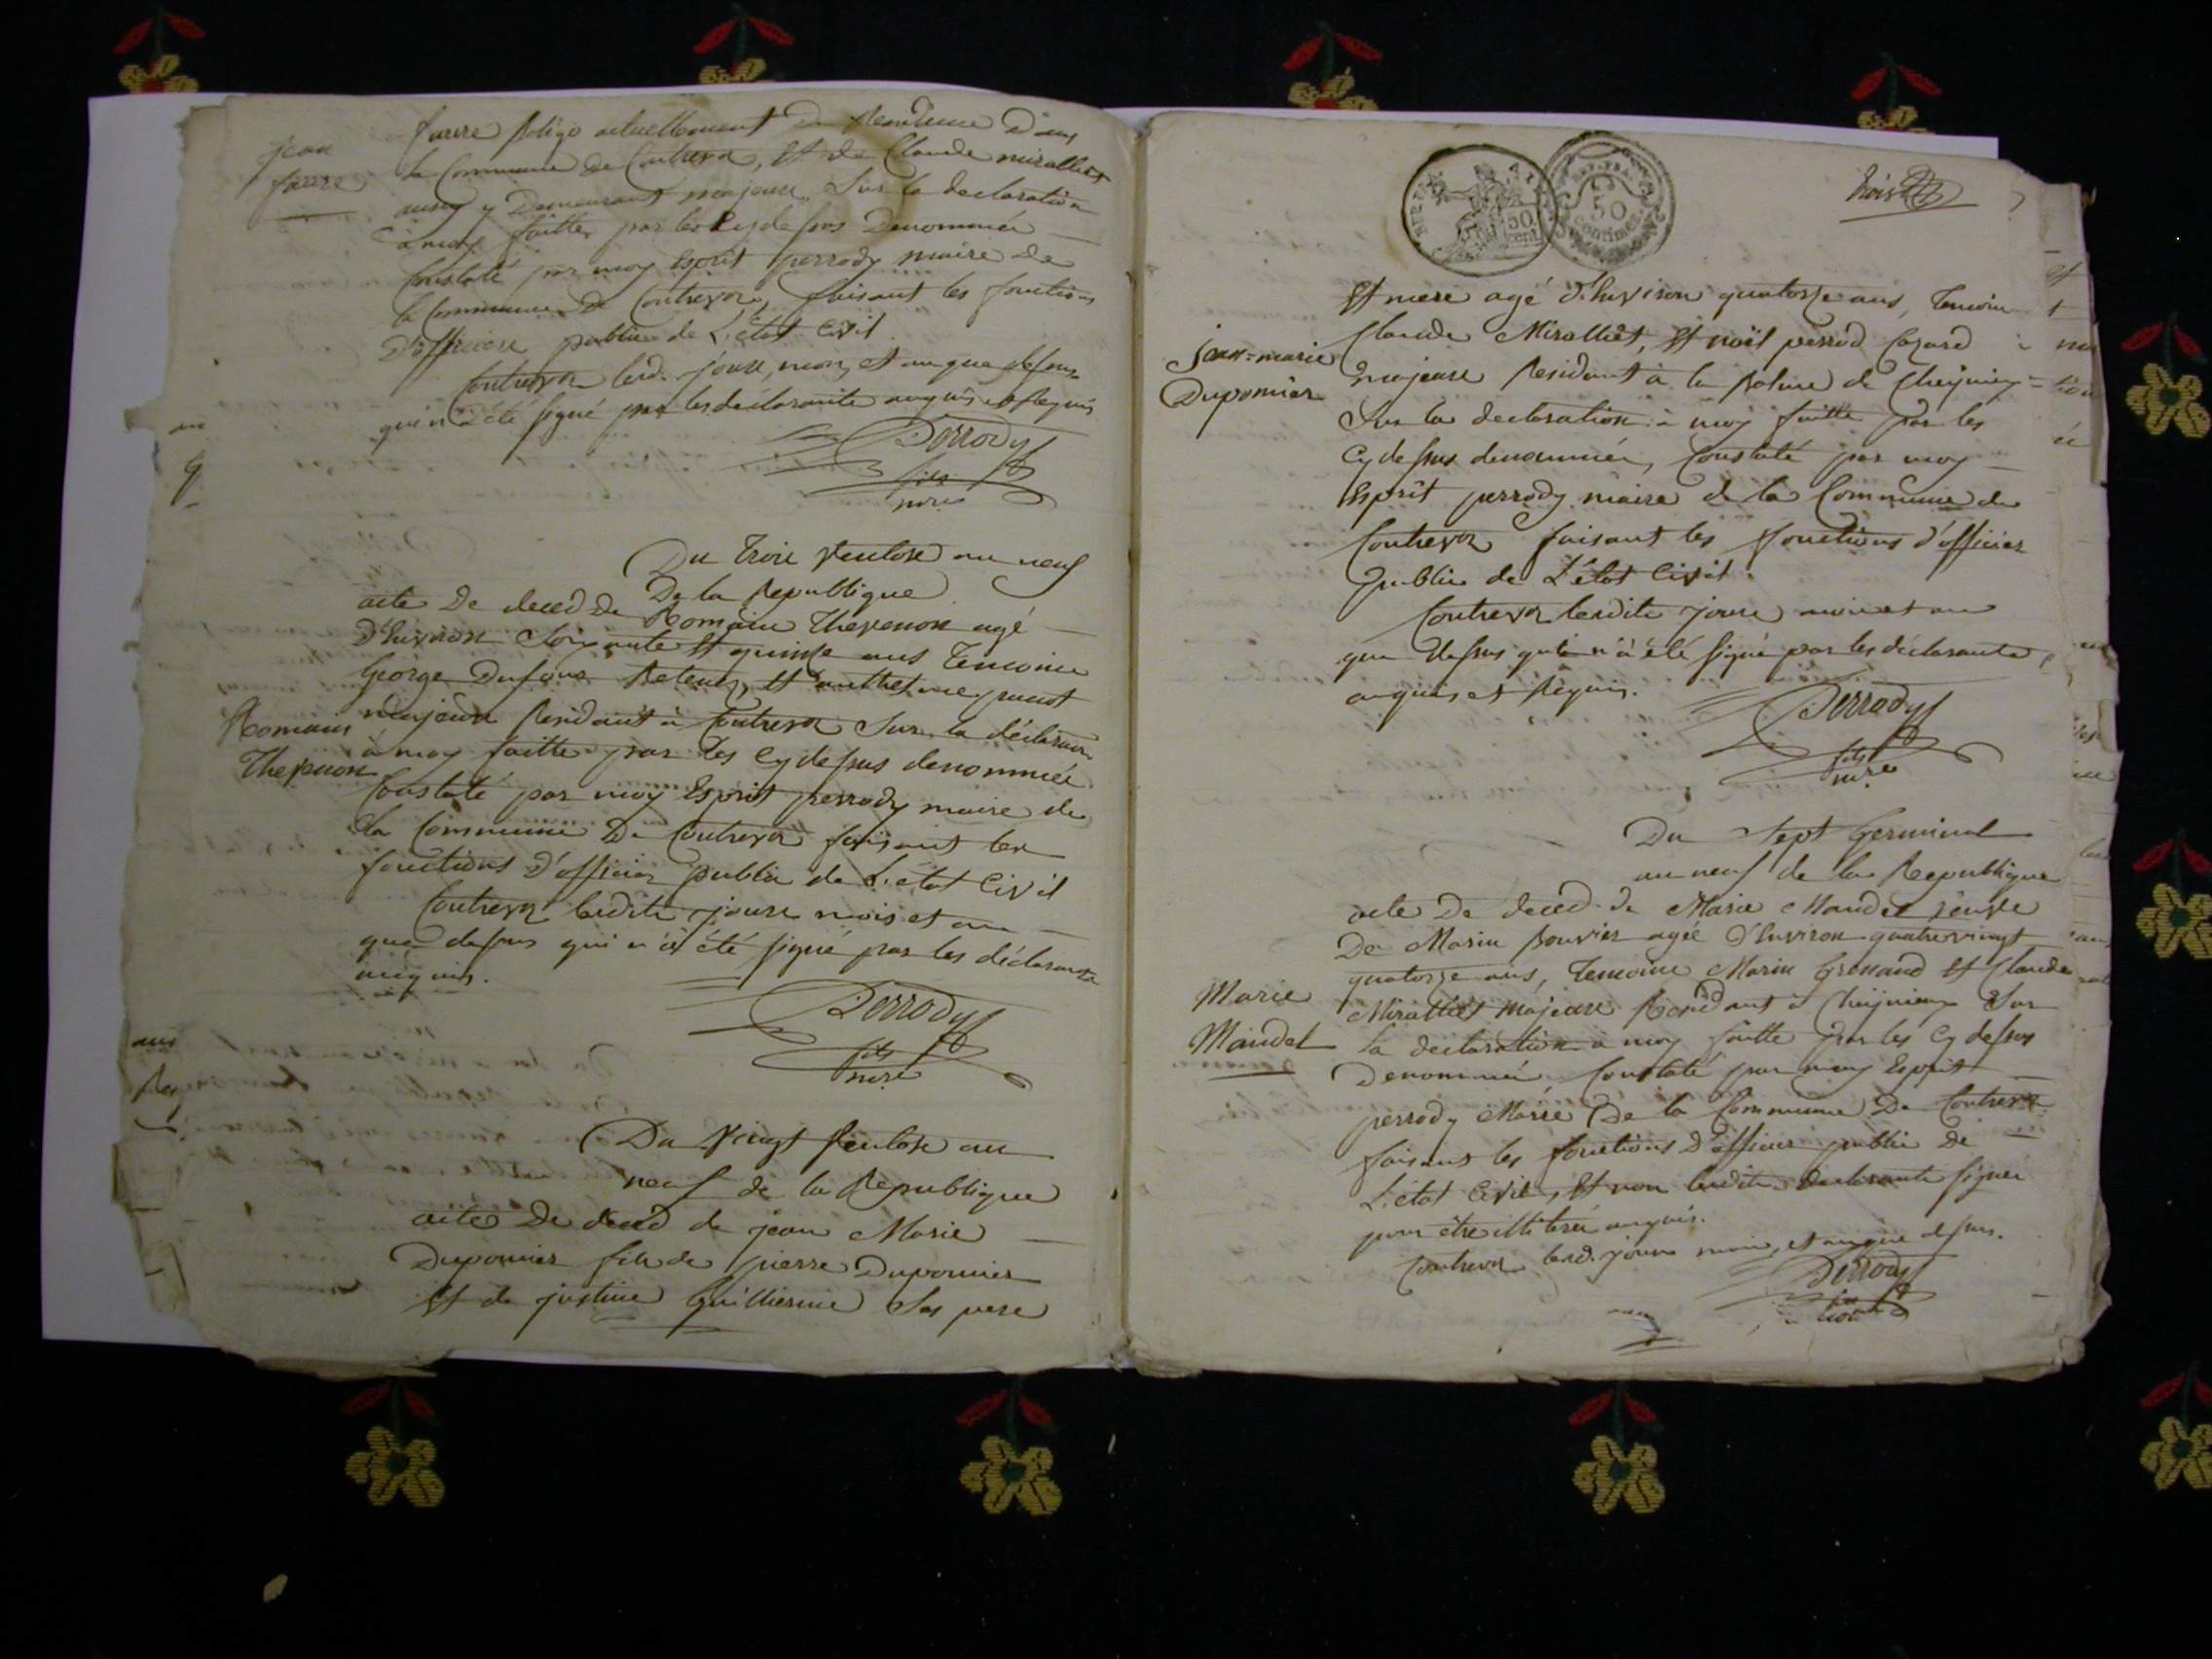 jean
favre
favre Religo actuellement De Residence Dans
la Commune De Contrevoz, Et de Claude miralliet
aussy y Demeurant majeurs, Sur la declaration
à moy faitte par les Cydessus Denommés
Constaté par moy Esprit perrody maire de
la Commune De Contrevoz, faisant les fonctions
D'officier public de L'état Civil
Contrevoz lesd. jour, mois, et an que dessus
qui n'a été signé par les declarants enquis et Requis
Perrody
fils
mere
Du Trois ventose an neuf
De la Republique
acte De deced De Romain Thevenon agé
D'Environ Soixante Et quinze ans Temoins
George Dufour
majeurs Residant à Contrevoz Sur la déclaraon
Romain
Thevenon
à moy faitte par les Cydessus denommés
Constaté par moy Esprit perrody maire de
la Commune De Contrevoz faisant les
fonctions D'officier public de L'état Civil
Contrevoz lesdits jour mois et an
que dessus qui n'a été signé par les déclarants
enquis.
Perrody
fils
mere
Du vingt ventose an
neuf de la Republique
acte De deced de jean Marie
Duponnier fils de pierre Duponnier
Et de justine Guillierme Ses pere
trois
REP. FRA.
50
cent.
50
Centimes
Et mere agé d'Environ quatorze ans, Temoins
jean=marie
Duponnier
Claude Miralliet, Et noël perrod Cozard
majeurs Residant à la palme de Cheignieu
Sur la declaration à moy faitte par les
Cydessus denommés, Constaté par moy
Esprit perrody maire de la Commune de
Contrevoz faisant les fonctions d'officier
public de L'état Civil.
Contrevoz lesdits jour mois et an
que dessus qui n'a été signé par les déclarants,
enquis et Requis.
Perrody
fils
mere
Du Sept Germinal
an neuf de la Republique
acte De deced de Marie Mandet veuve
De Marin Bouvier agée D'Environ quatrevingt
quatorze ans, Temoins Marin Grenand Et Claude
Marie
Mandet
Miralliet majeurs Residant à Cheignieu Sur
la declaration à moy faitte par les Cydessus
Denommés, Constaté par moy Esprit
perrody Maire De la Commune De Contrevoz
faisant les fonctions D'officier public de
L'état Civil, Et non lesdits declarants signer
pour être illiterés enquis.
Contrevoz lesd. jour mois, et an que dessus.
Perrody